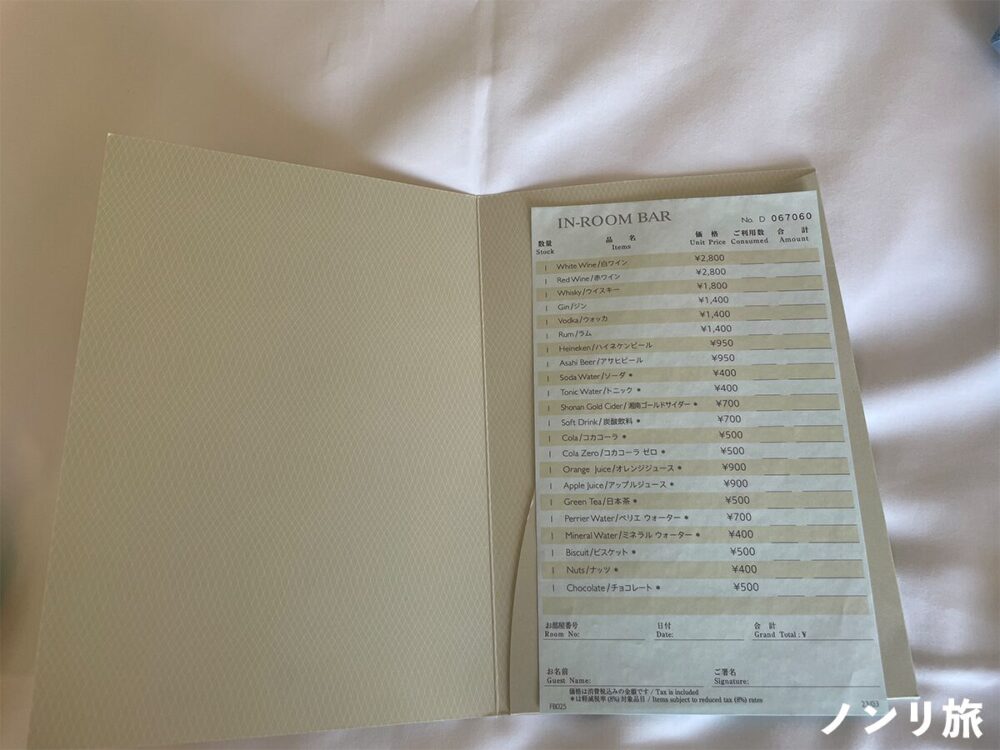 IN-ROOM BAR
No. D 067060
数量 品名 価格 ご利用数 合計
Stock Items Unit Price Consumed Amount
1 White Wine/白ワイン ¥2,800
1 Red Wine/赤ワイン ¥2,800
1 Whisky/ウイスキー ¥1,800
1 Gin/ジン ¥1,400
1 Vodka/ウォッカ ¥1,400
1 Rum/ラム ¥1,400
1 Heineken/ハイネケンビール ¥950
1 Asahi Beer/アサヒビール ¥950
1 Soda Water/ソーダ * ¥400
1 Tonic Water/トニック * ¥400
1 Shonan Gold Cider/湘南ゴールドサイダー * ¥700
1 Soft Drink/炭酸飲料 * ¥700
1 Cola/コカコーラ * ¥500
1 Cola Zero/コカコーラ ゼロ * ¥500
1 Orange Juice/オレンジジュース * ¥900
1 Apple Juice/アップルジュース * ¥900
1 Green Tea/日本茶 * ¥500
1 Perrier Water/ペリエ ウォーター * ¥700
1 Mineral Water/ミネラル ウォーター * ¥400
1 Biscuit/ビスケット * ¥500
1 Nuts/ナッツ * ¥400
1 Chocolate/チョコレート * ¥500
お部屋番号 日付 合計
Room No: Date: Grand Total: ¥
お名前 ご署名
Guest Name: Signature:
価格は消費税込みの金額です / Tax is included
*は軽減税率(8%)対象品目 / Items subject to reduced tax (8%) rates
FB025
ノンリ旅